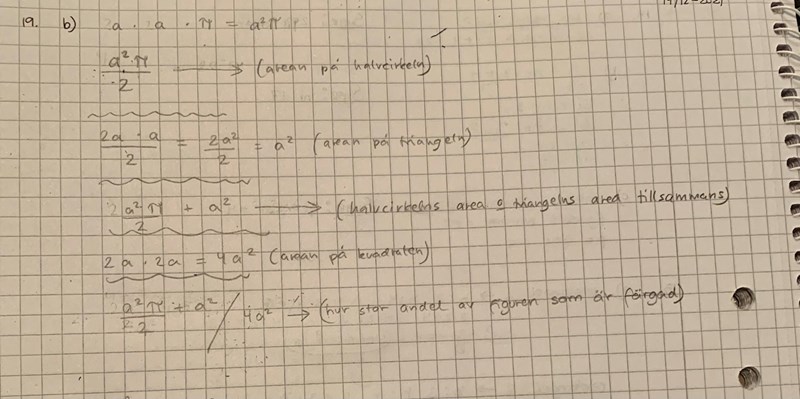 19. b) a · a · π = a²π
a²·π / 2 → (arean på halvcirkeln)
2a · a / 2 = 2a² / 2 = a² (arean på triangeln)
a²π / 2 + a² → (halvcirkelns area o triangelns area tillsammans)
2a · 2a = 4a² (arean på kvadraten)
a²π / 2 + a² / 4a² → (hur stor andel av figuren som är färgad)